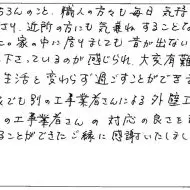 ちろんのこと、職人の方々も毎日 気持
さり、近所の方にも気兼ね することな
この家の中に居りましても 音が出ない
下さっているのが感じられ、大変有難
生活と変わらず過ごすことができ
でも別の工事業者さんによる 外壁工
の工事業者さんの 対応の良さを
ることができたご縁に感謝いたしまし